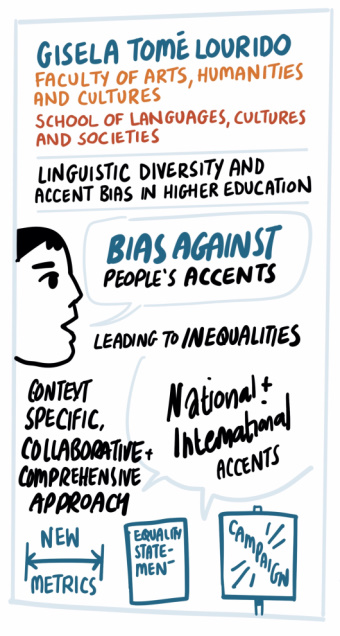 GISELA TOMÉ LOURIDO
FACULTY OF ARTS, HUMANITIES
AND CULTURES
SCHOOL OF LANGUAGES, CULTURES
AND SOCIETIES
LINGUISTIC DIVERSITY AND
ACCENT BIAS IN HIGHER EDUCATION
BIAS AGAINST
PEOPLE'S ACCENTS
LEADING TO INEQUALITIES
CONTEXT
SPECIFIC,
COLLABORATIVE +
COMPREHENSIVE
APPROACH
National +
International
ACCENTS
NEW
METRICS
EQUALITY
STATE-
MENT
CAMPAIGN